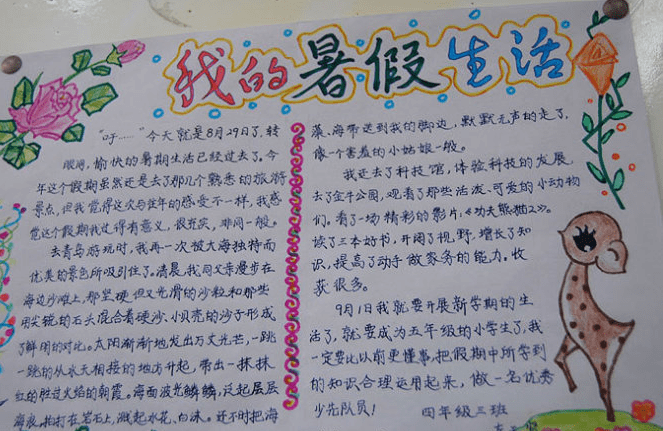 我的暑假生活
“吁……”今天就是8月29日了，转
眼间，愉快的暑期生活已经过去了。今
年这个假期虽然还是去了那几个熟悉的旅游
景点，但我觉得这次与往年的感受不一样，我感
觉这个假期我过得有意义、很充实，非同一般。
去青岛游玩时，我再一次被大海独特而
优美的景色所吸引住了。清晨，我同父亲漫步在
海边沙滩上，那坚硬但又光滑的沙粒和那些
用尖锐的石头混合着硬沙、小贝壳的沙子形成
了鲜明的对比。太阳渐渐地发出万丈光芒，一跳
一跳的从水天相接的地方开起，带出一抹抹
红的胜过火焰的朝霞。海面波光鳞鳞，泛起层层
海浪，拍打在岩石上，溅起水花、白沫。还不时把海
藻、海带送到我的脚边，默默无声的走了，
像一个害羞的小姑娘一般。
我还去了科技馆，体验科技的发展，
去了金牛公园，观看了那些活泼、可爱的小动物
们，看了一场精彩的影片，《功夫熊猫2》。
读了三本好书，开阔了视野，增长了知
识，提高了动手做家务的能力，收
获很多。
9月1日我就要开展新学期的生
活了，就要成为五年级的小学生了，我
一定要比以前更懂事，把假期中所学到
的知识合理运用起来，做一名优秀
少先队员！
四年级三班